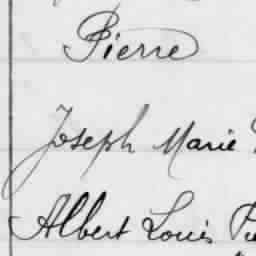 Pierre
Joseph Marie
Albert Louis